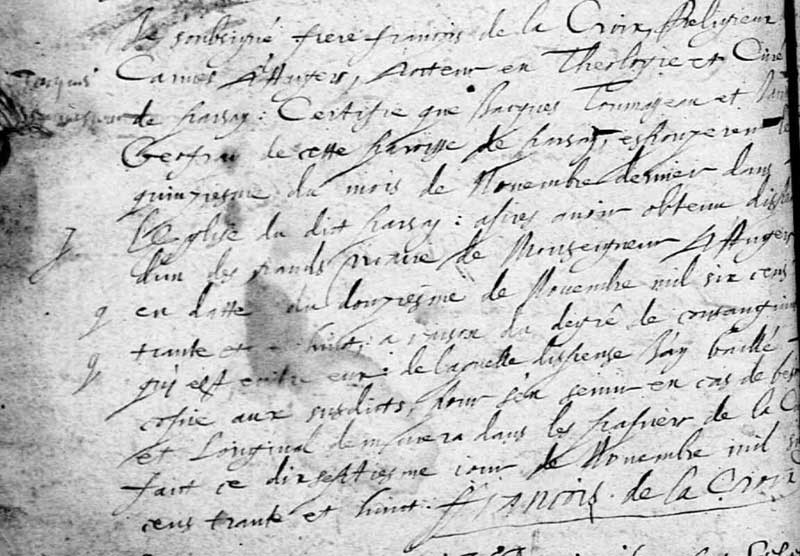 Je soubsigné frere francois de la Croix, Religieux
Jacques
Carmes d'Angers, docteur en Theologie et Curé
de Sarsay : Certifie que Jacques Tournageau et
Geofray de cette paroisse de Sarsay, espouzerent le
quinziesme du mois de Novembre dernier dans
l'Eglise du dict Sarsay : apres avoir obtenu
d'un des grands vicaire de Monseigneur d'Angers
en datte du douziesme de Novembre mil six cens
trante et huict, a raison du degré de
qui est entre eux : de laquelle dispense J'ay baillé
copie aux susdicts, pour s'en servir en cas de
et l'original demeurera dans les papiers de la
faict ce dixseptiesme jour de Novembre mil
cens trante et huict. francois de la Croix